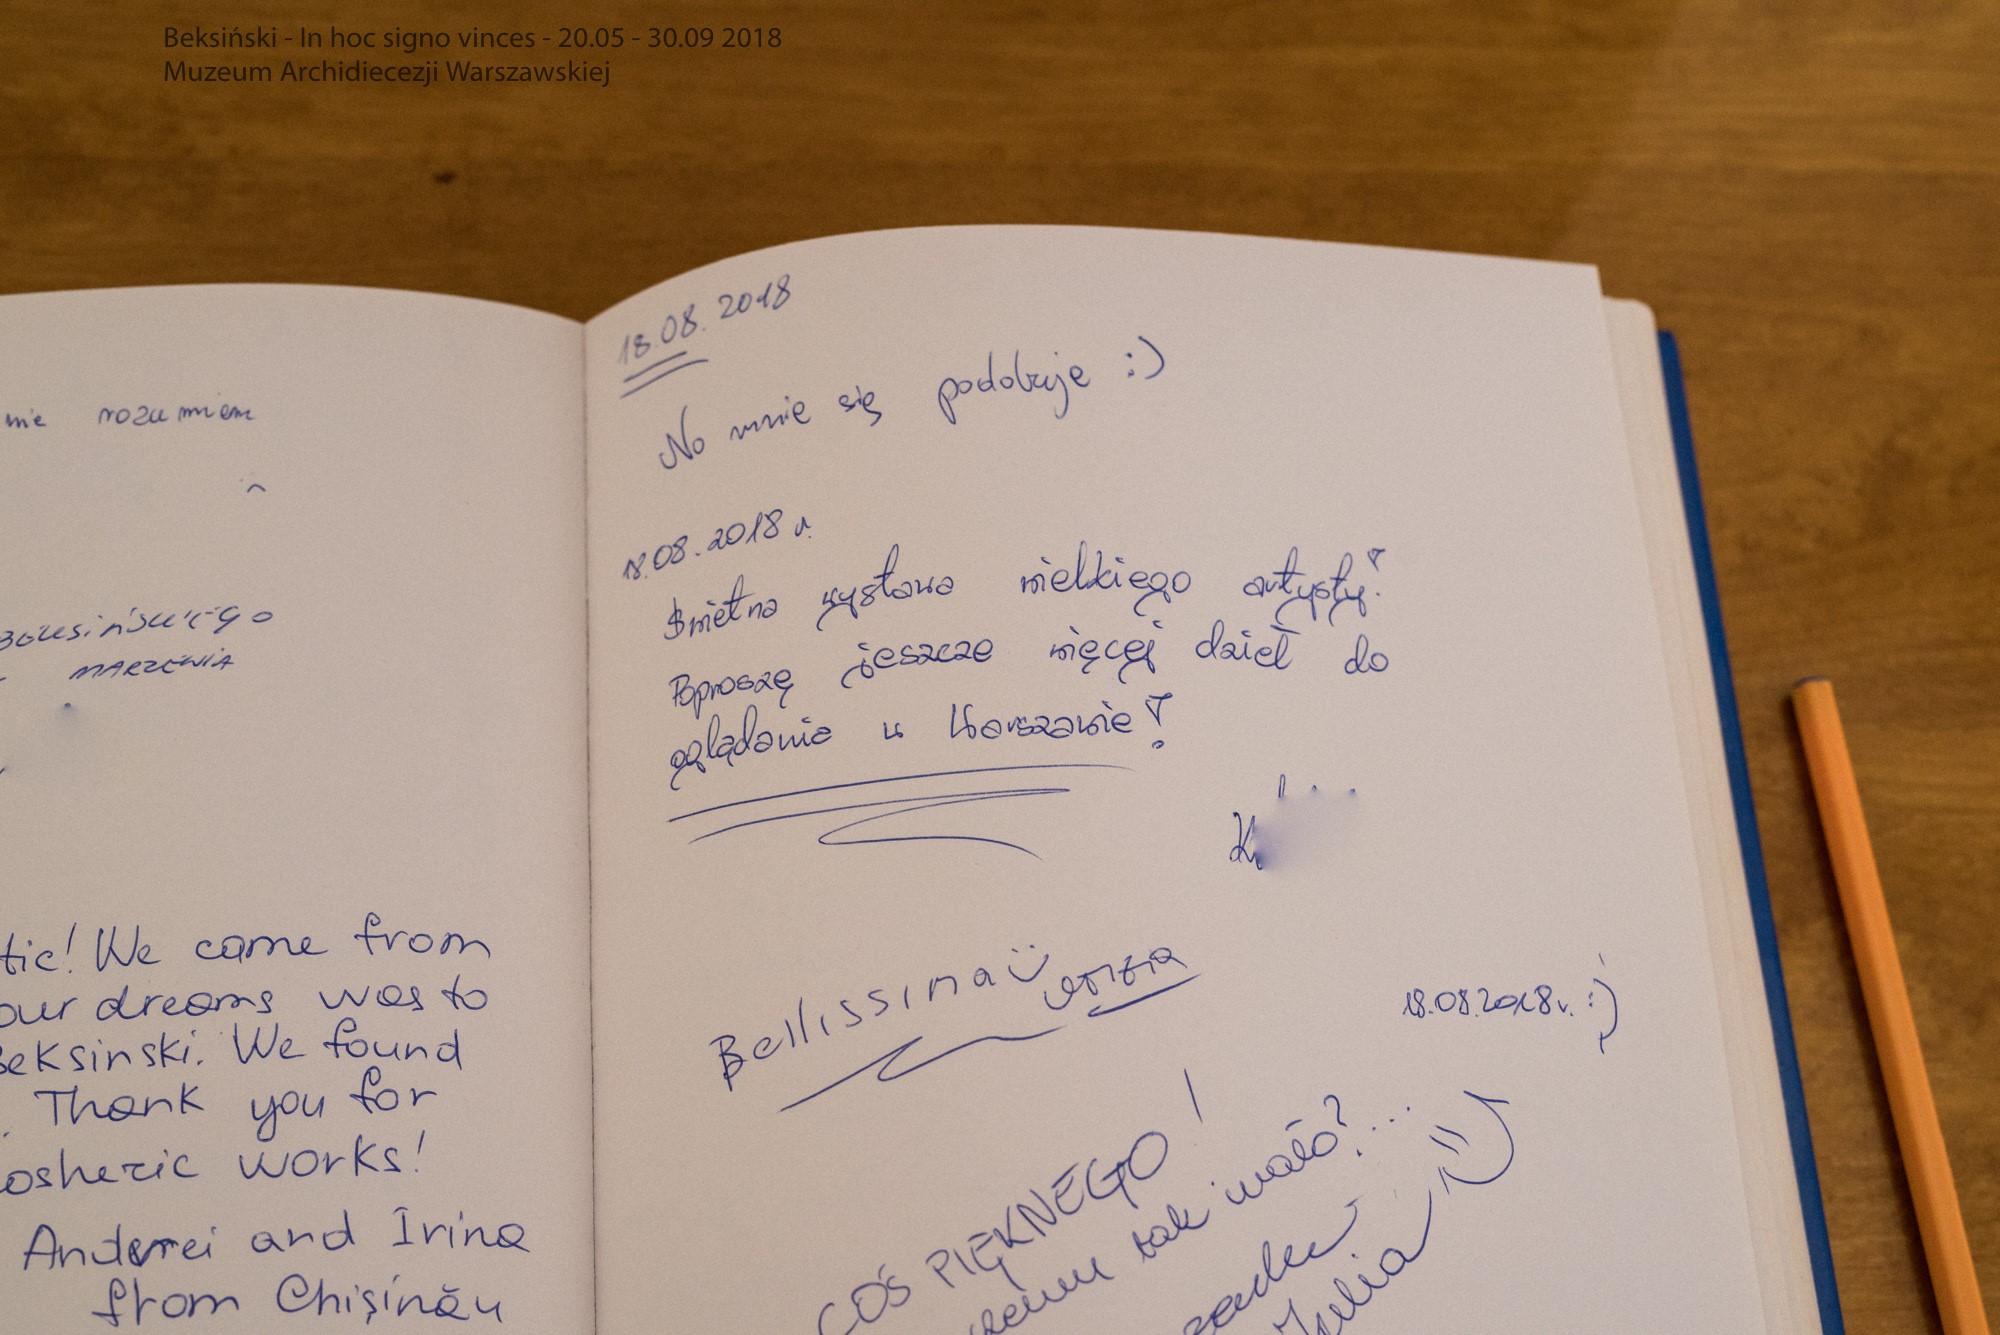 Beksiński - In hoc signo vinces - 20.05 - 30.09 2018
Muzeum Archidiecezji Warszawskiej
nie rozumiem
MARZENIA
tic! We came from
our dreams was to
Beksinski. We found
. Thank you for
osheric works!
Andrei and Irina
from Chișinău
18.08.2018
No mnie się podobuje :)
18.08.2018 r.
Świetna wystawa wielkiego artysty!
Poproszę jeszcze więcej dzieł do
oglądania w Warszawie!
K
Bellissima
18.08.2018r. :)
COŚ PIĘKNEGO!
tak mało?...
Julia